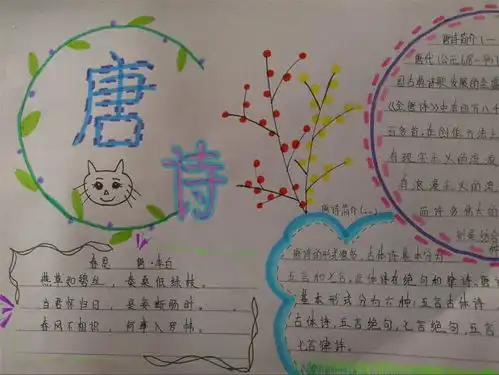 唐诗
春思 唐·李白
燕草如碧丝，秦桑低绿枝。
当君怀归日，是妾断肠时。
春风不相识，何事入罗帏。
唐诗简介(一
唐代(公元618-907
国古典诗歌发展的全盛
《全唐诗》中
百多首，在创作方法上
有现实主义的流派
有浪漫主义的流
而许多伟大的
则是结合
唐诗简介(二)
唐诗的形式很多，古体诗基本分为
五言和七言，近体诗有绝句和律诗。唐
基本形式分为六种，五言古体诗
古体诗，五言绝句，七言绝句，五言
七言律诗。